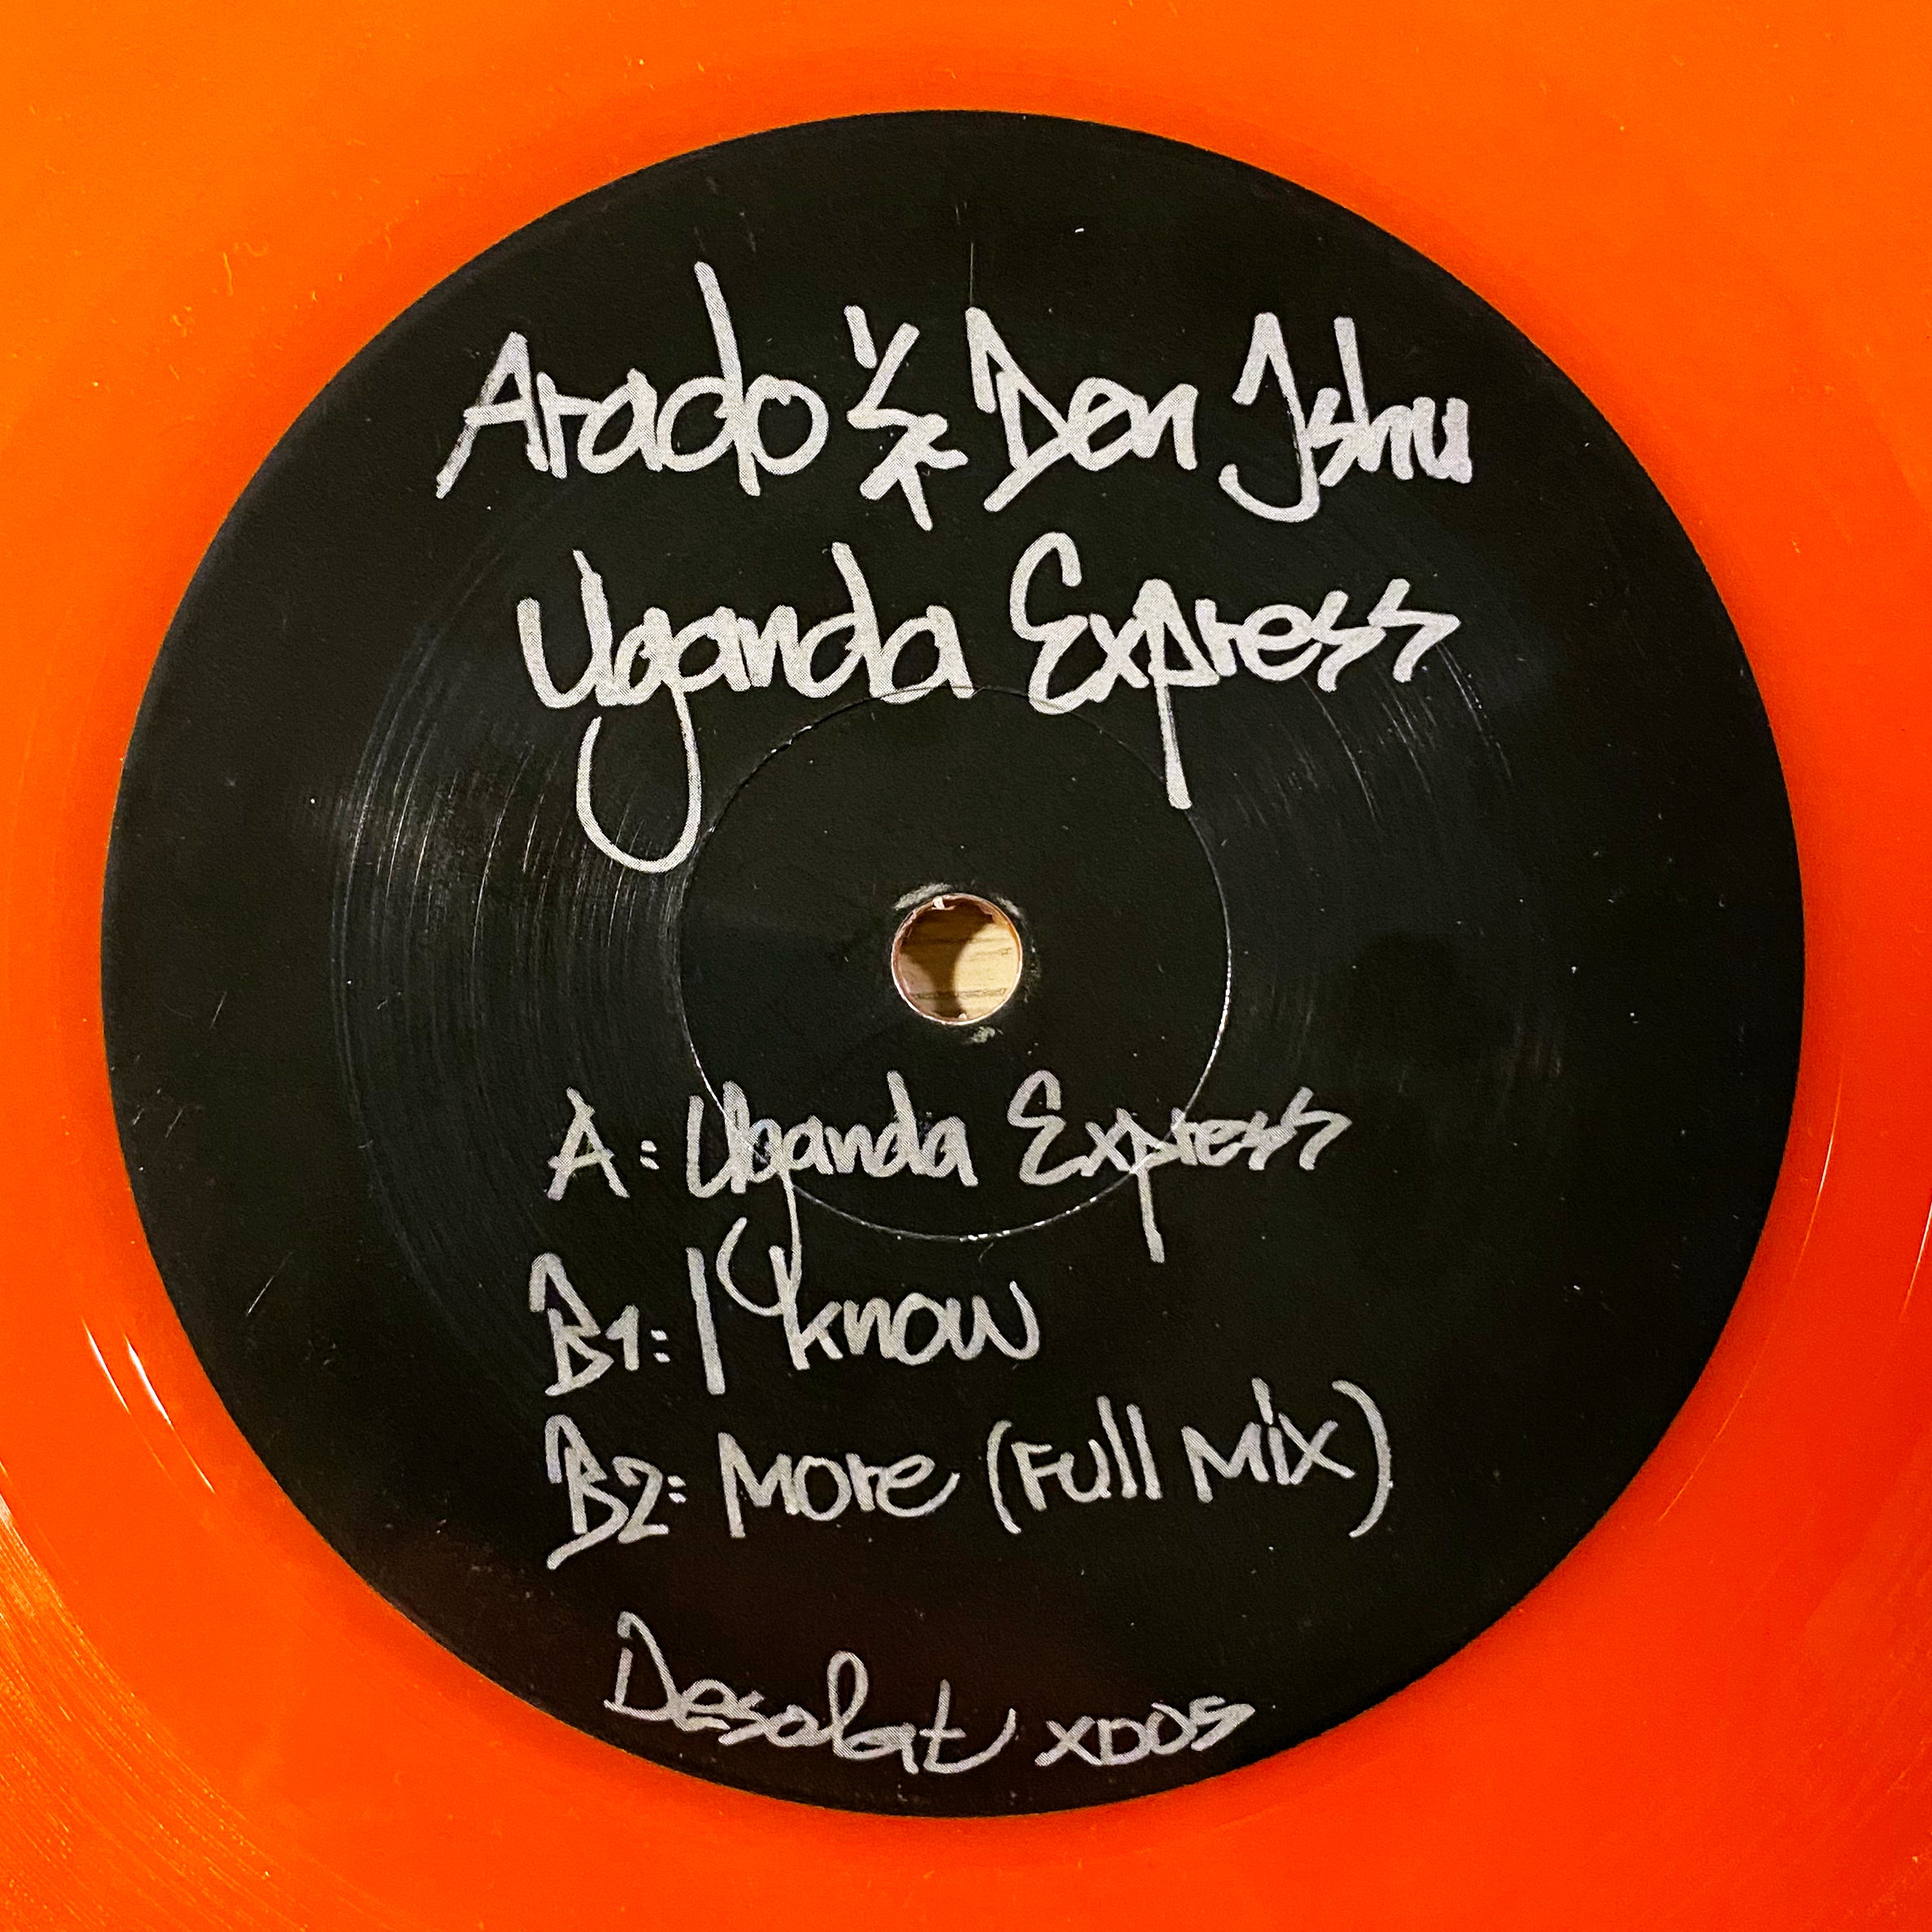 Arado & Den Ishu
Uganda Express
A: Uganda Express
B1: I know
B2: More (Full Mix)
Desolat XD05